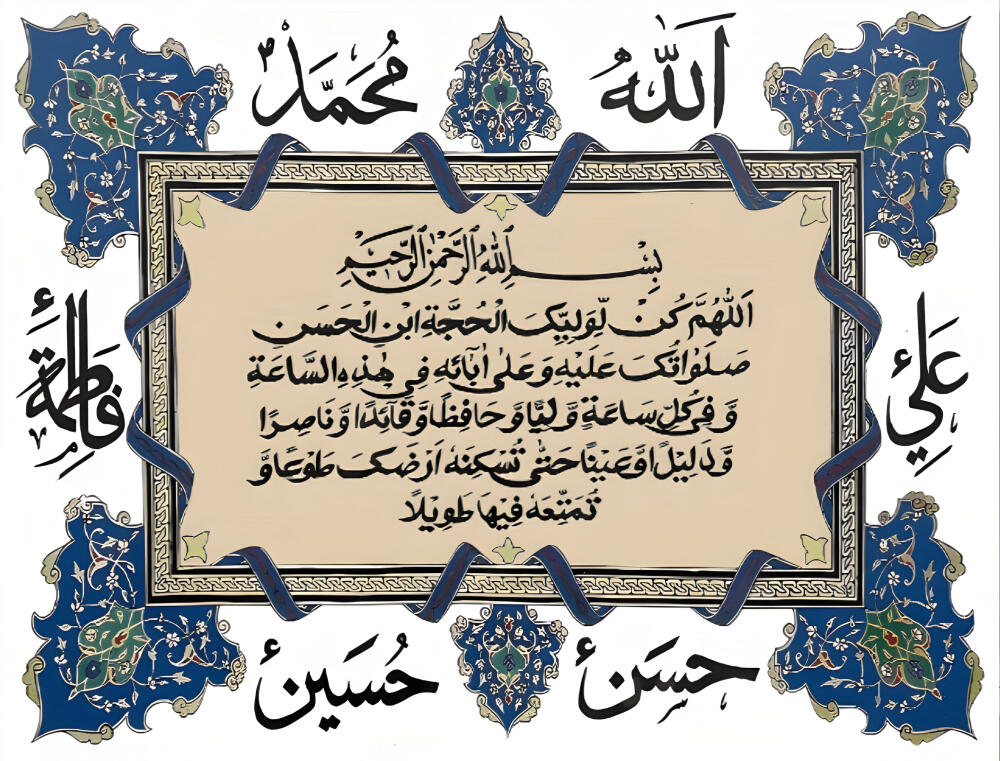 اَللّٰهُ
مُحَمَّدْ ؐ
بِسْمِ اللهِ الرَّحْمٰنِ الرَّحِيْمِ
اَللّٰهُمَّ كُنْ لِّوَلِيِّكَ الْحُجَّةِ ابْنِ الْحَسَنِ
صَلَوٰاتُكَ عَلَيْهِ وَعَلٰى اٰبَآئِهٖ فِيْ هٰذِهِ السَّاعَةِ
وَفِيْ كُلِّ سَاعَةٍ وَّلِيًّا وَّحَافِظًا وَّقَآئِدًا وَّنَاصِرًا
وَّدَلِيْلًا وَّعَيْنًا حَتّٰى تُسْكِنَهٗ اَرْضَكَ طَوْعًا وَّ
تُمَتِّعَهٗ فِيْهَا طَوِيْلًا
عَلِيٌ ؑ
فَاطِمَة ؑ
حَسَنْ ؑ
حُسَيْن ؑ